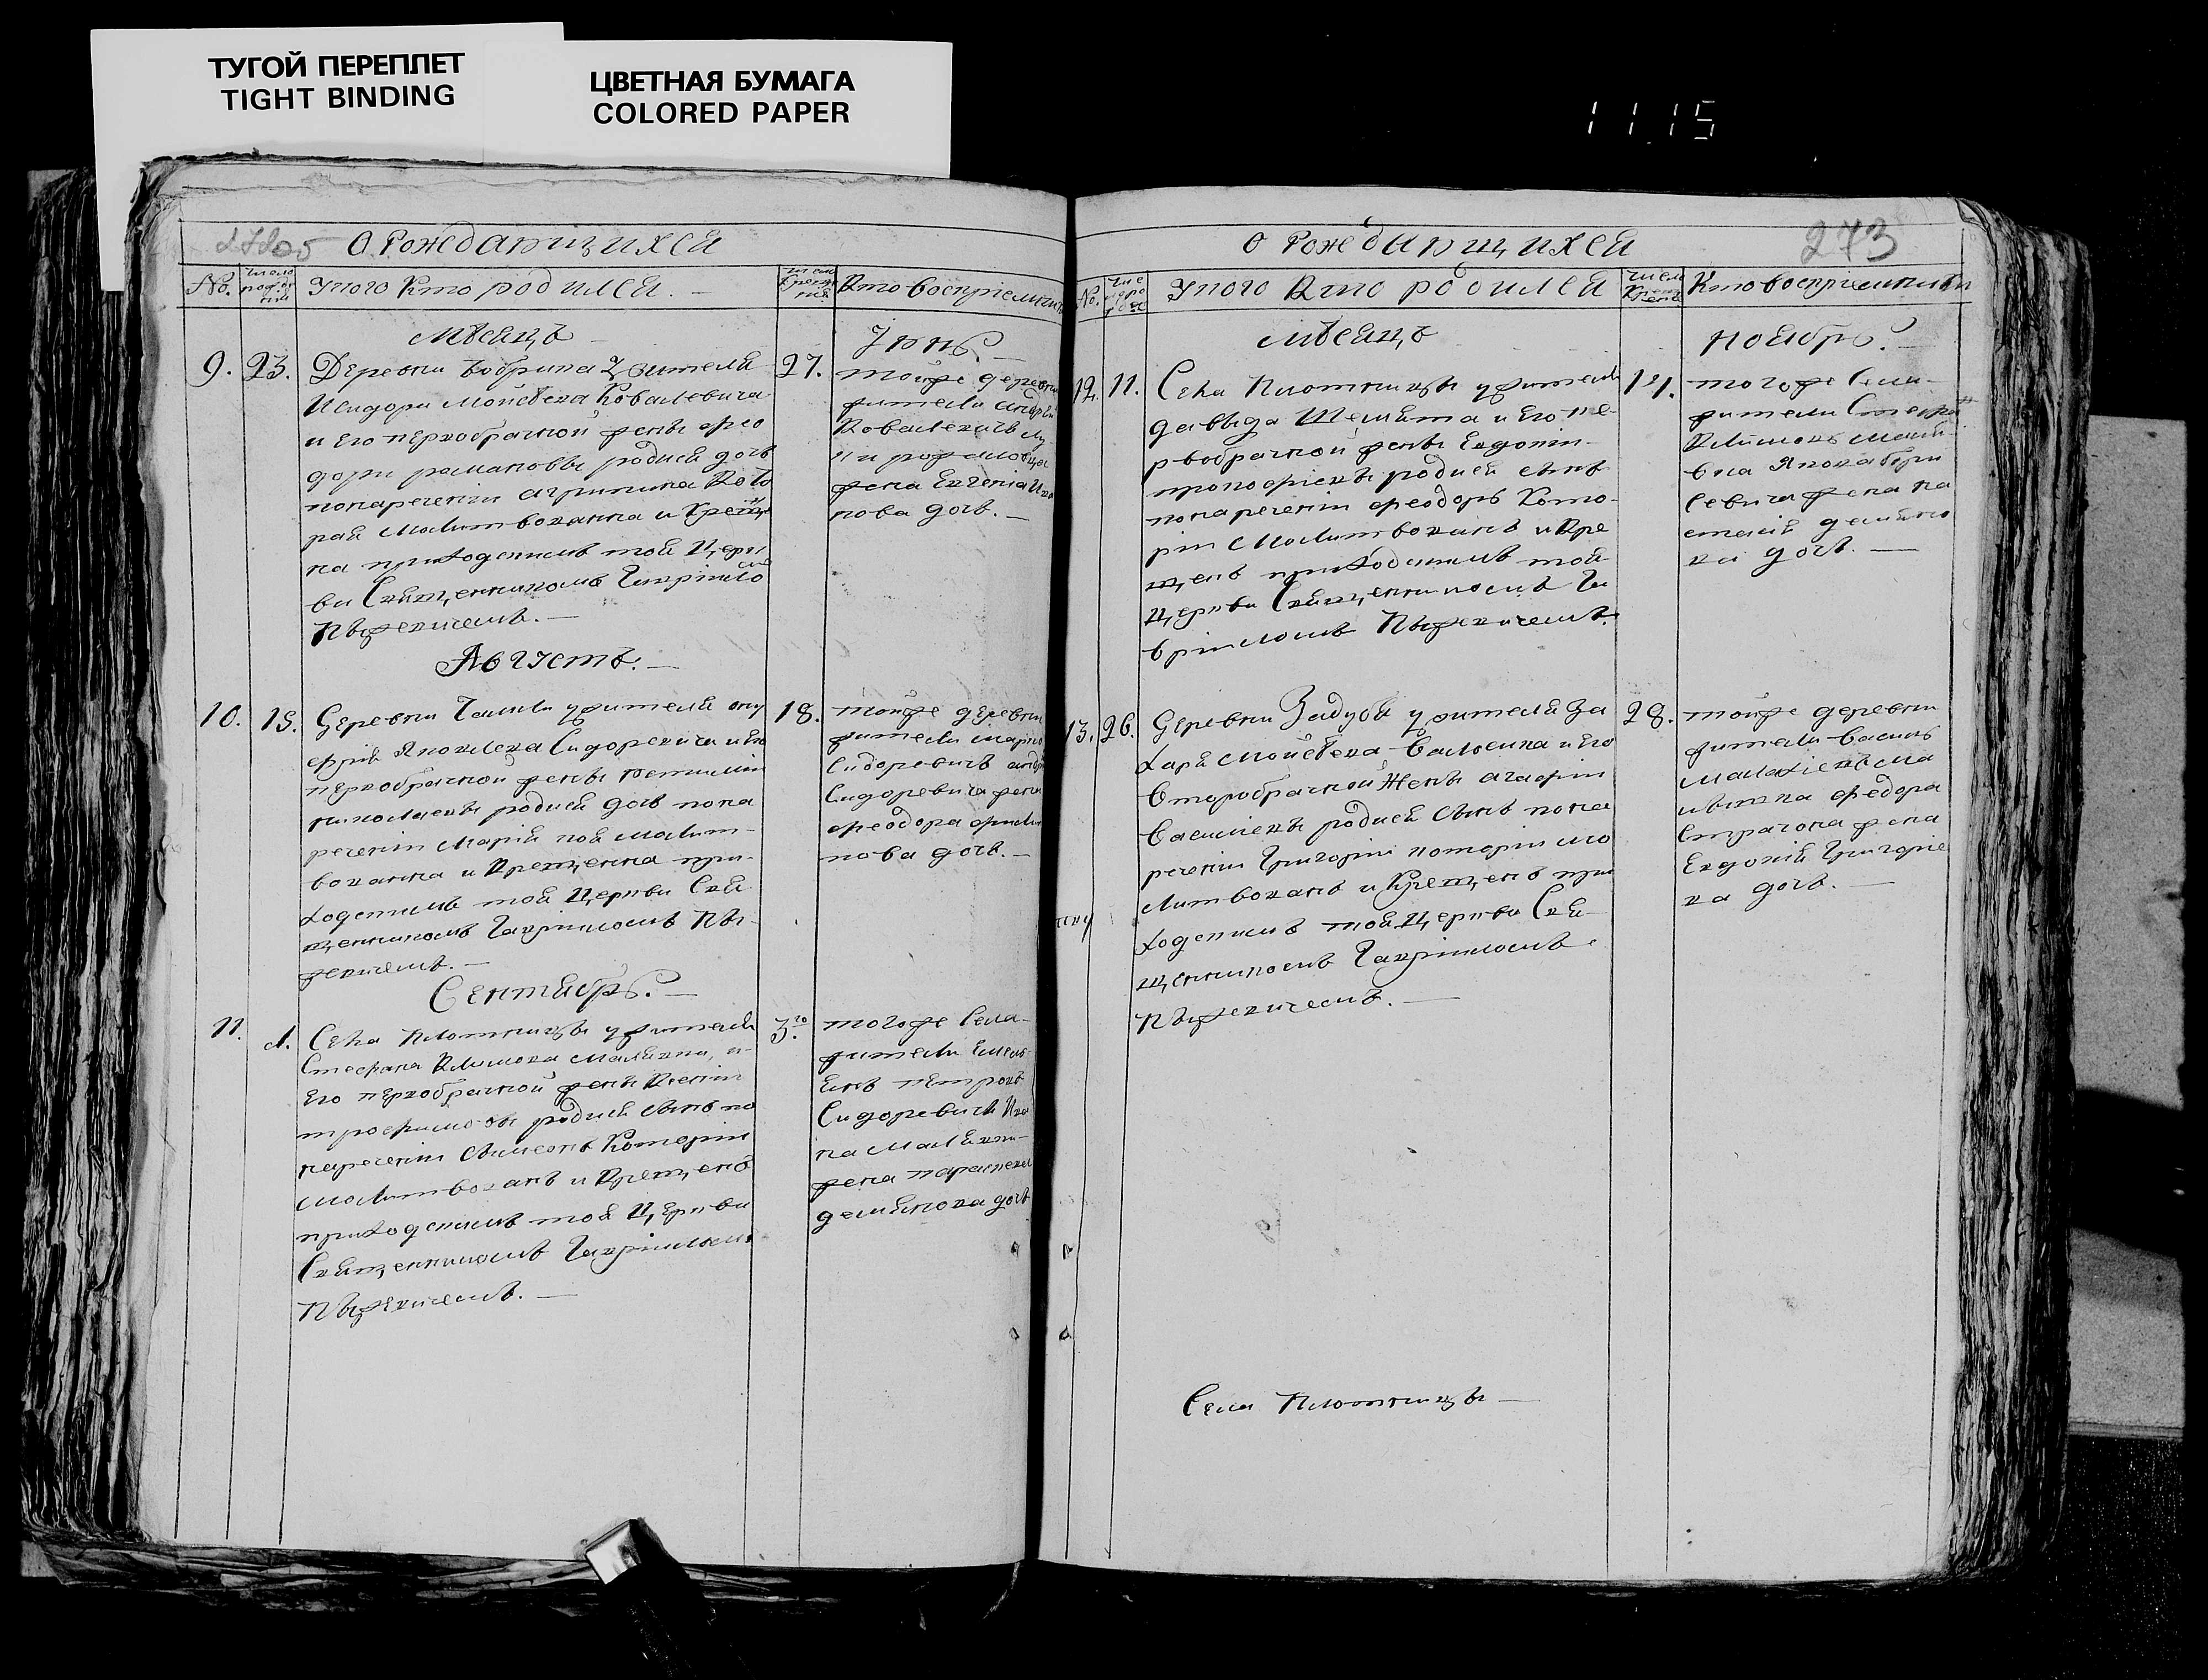 ТУГОЙ ПЕРЕПЛЕТ
TIGHT BINDING
ЦВЕТНАЯ БУМАГА
COLORED PAPER
11 15
О Рождающихся
No. Число рожде ния Укого Кто родился. Число Креще ния Кто восприемники
Мѣсяцъ Іюнь.
9. 23. Деревни Бобрика Жителя
Исидора Мойсѣева Ковалевича
и Его первобрачной жены Фео
доры Романовы родися дочь
понаречении Агрипина Кото
рая Молитвованна и Креще
на приходскимъ той Церк
ви Священникомъ Гавріиломъ
Пыжевичемъ.
27. тойже деревни
жители Андрей
Ковалевичъ
жена Евгенія
нова дочь.
Августъ.
10. 15. Деревни Галева Жителя Ону
фрія Яковлева Сидоревича и Его
первобрачной жены
николаевы родися дочь пона
речении Марія коя Молит
вованна и Крещенна при
ходскимъ той Церкви Свя
щенникомъ Гавріиломъ Пы
жевичемъ.
18. тойже деревни
жители Марко
Сидоревичъ Андрея
Сидоревича жена
Феодора
нова дочь.
Сентябрь.
11. 1. Села Плотницы Жителя
Стефана Климова и
Его первобрачной жены Ксении
трофимовы родися сынъ по
наречении Симеонъ Которій
молитвованъ и Крещенъ
приходскимъ той Церкви
Священникомъ Гавріиломъ
Пыжевичемъ.
3го тогоже Села
жители Емель
янъ Петровъ
Сидоревичъ Ива
на
жена Параскева
демянова дочь
О Рождающихся 273
No. Число рожде Укого Кто родился Число Креще Кто восприемники
Мѣсяцъ Ноябрь.
12. 11. Села Плотницы Жителя
Давыда Шелюта и Его пе
рвобрачной жены Евдокіи
прокофіевы родися сынъ
понаречении Феодоръ Кото
рій Молитвованъ и Кре
щенъ приходскимъ той
Церкви Священникомъ Га
вріиломъ Пыжевичемъ.
14. тогоже Села
жители Стефанъ
Климовъ
Якова Бори
севича жена На
сталія демяно
ва дочь.
13. 26. Деревни Задубя Жителя За
харія Мойсѣева и Его
второбрачной Жены Агафіи
Василевы родися сынъ пона
речении Григорій которій мо
литвованъ и Крещенъ при
ходскимъ той Церкви Свя
щенникомъ Гавріиломъ
Пыжевичемъ.
28. тойже деревни
жители Василь
Малахіевъ
Федора
жена
Евдокія Григорie
ва дочь.
Села Плотницы